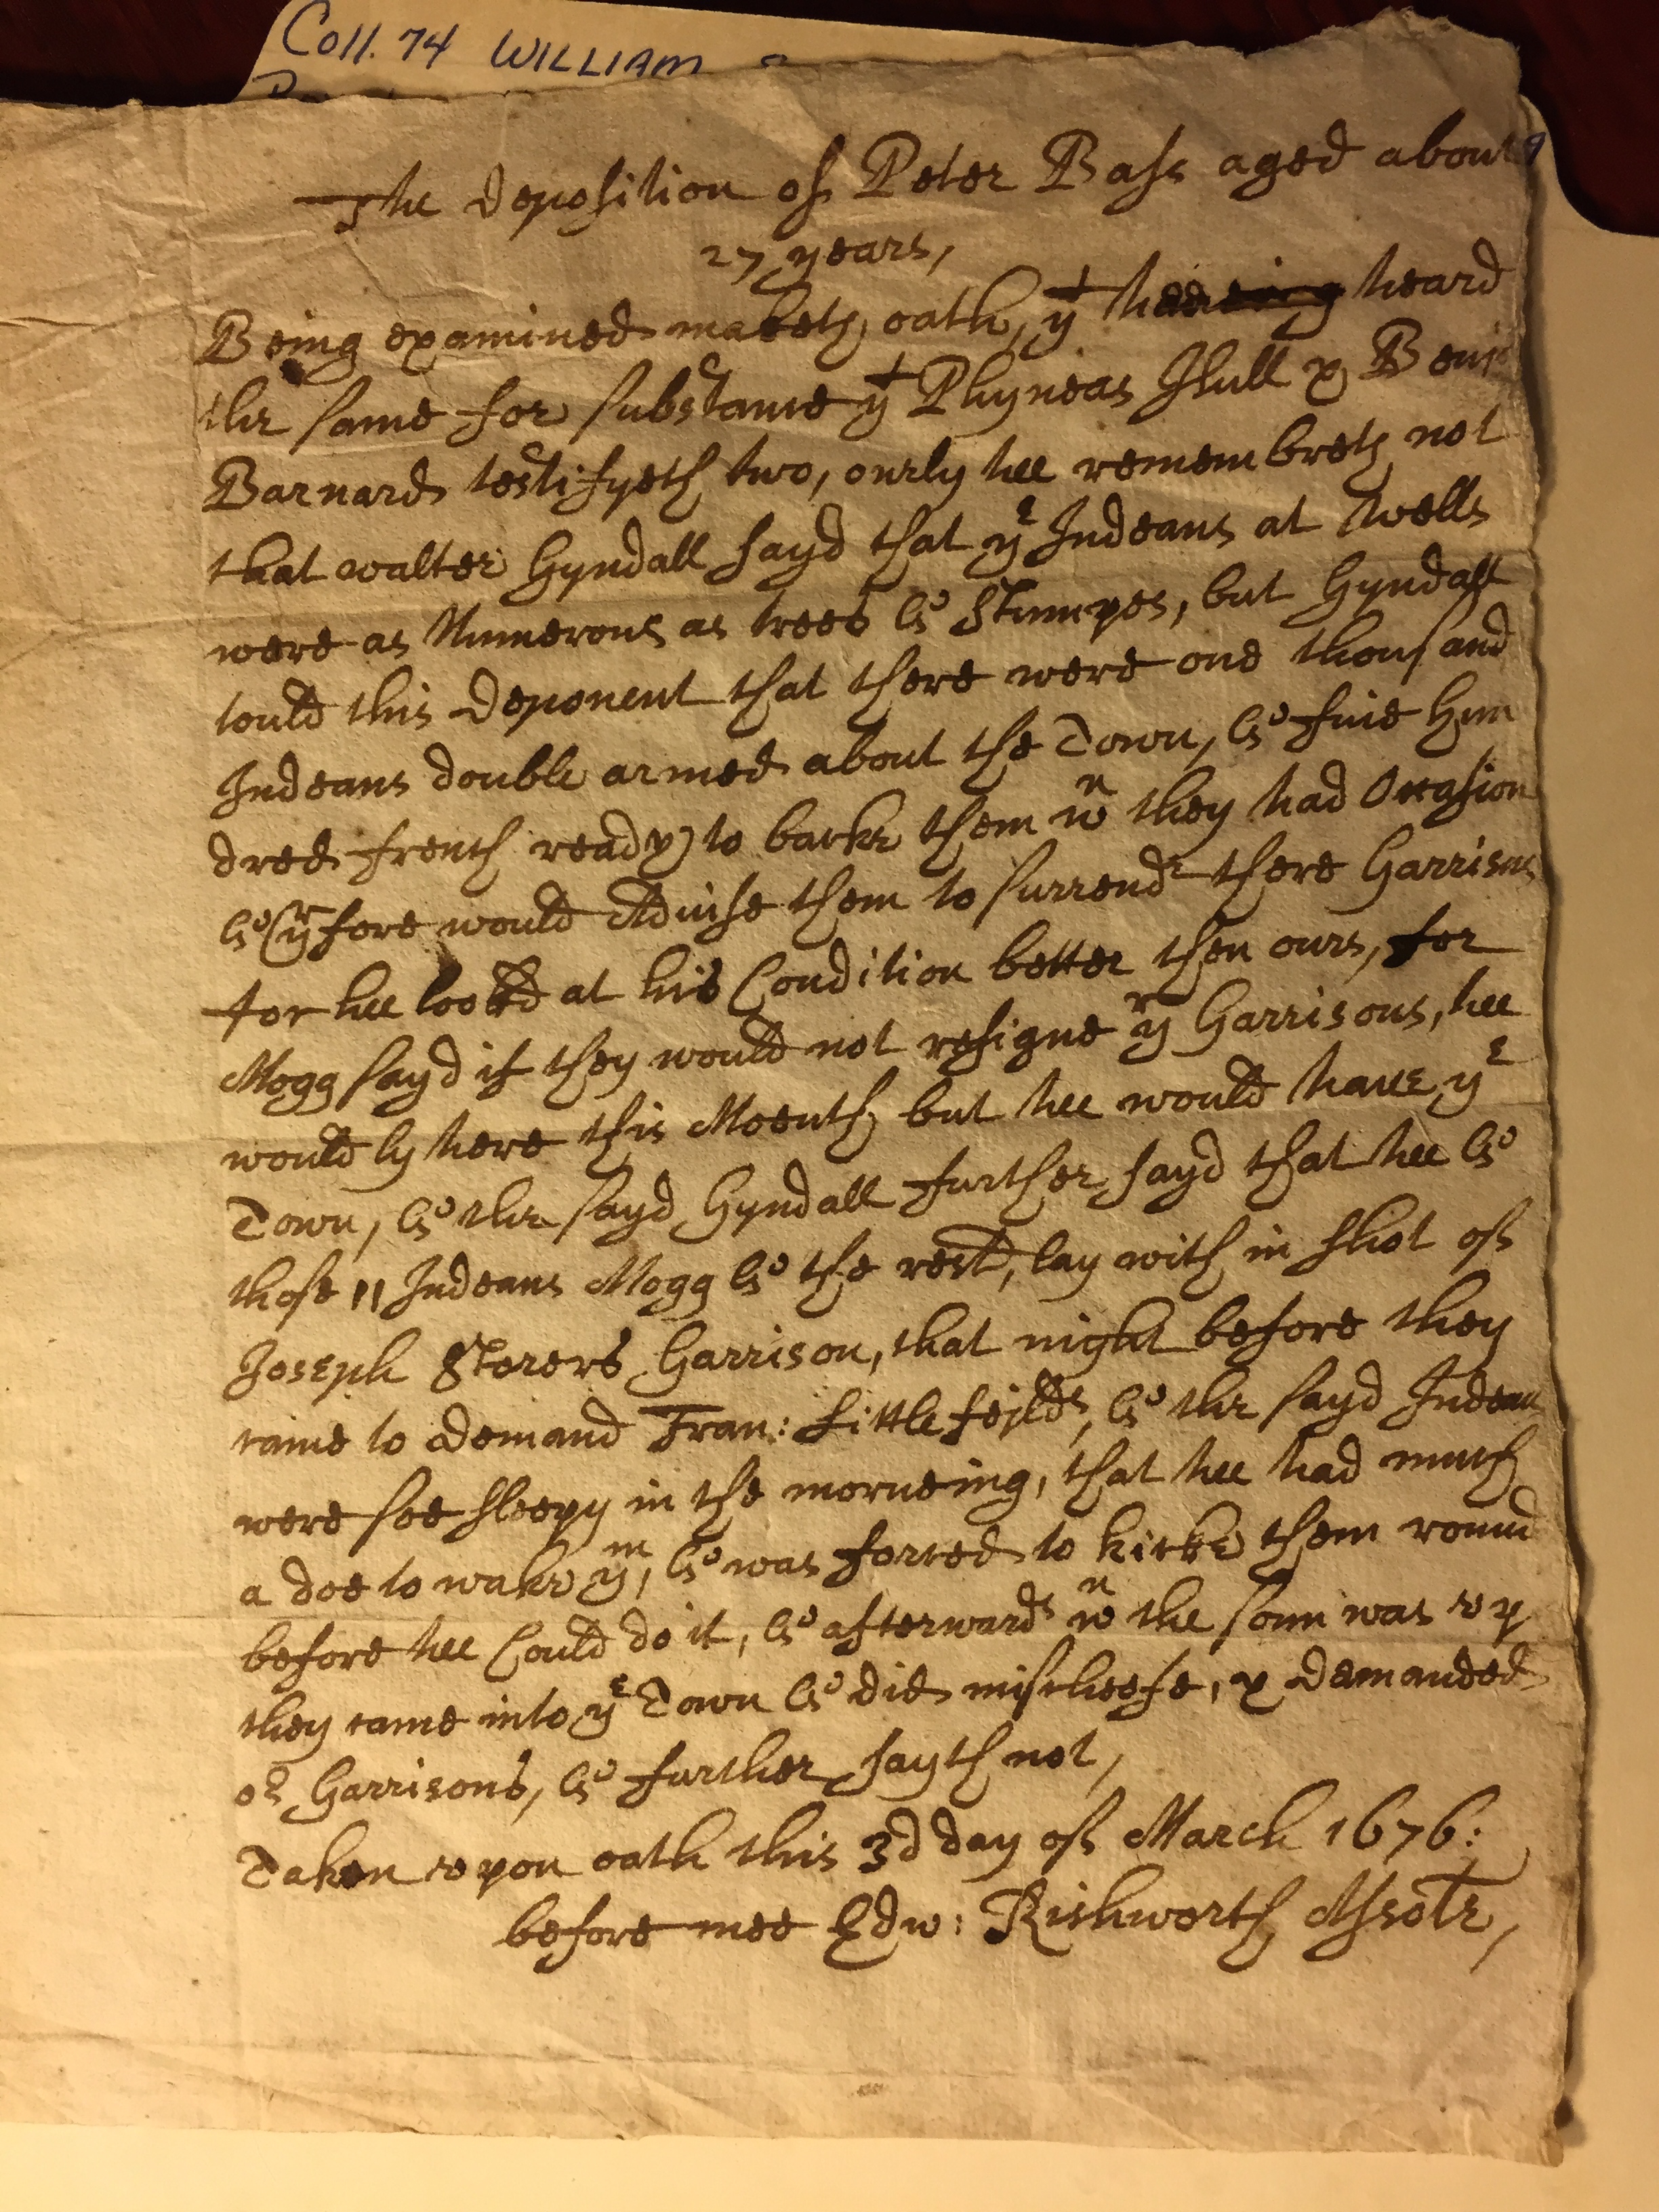 Coll. 74 WILLIAM
The deposition of Peter Bass aged about
27 years,
Being examined maketh oath, yt heard
the same for substance yt Phyneas Hull & Benj
Barnard testifyeth two, onely hee remembreth not
that walter Gyndall sayd that ye Indeans at Wells
were as Numerous as trees & stumpes, but Gyndall
tould this Deponent that there were one thousand
Indeans double armed about the Town, & fiue hun
dred french ready to backe them wn they had Occasion
& yrfore would Aduise them to surrendr there Garrisons
for hee lookd at his Condition better then ours, for
Mogg sayd if they would not resigne yr Garrisons, hee
would ly here this Moenth but hee would haue ye
Town, & the sayd Gyndall further sayd that hee &
those 11 Indeans Mogg & the rest, lay with in shot of
Joseph Storers Garrison, that night before they
came to demand Fran: Littlefejlds, & the sayd Indean
were soe sleepy in the morneing, that hee had much
a doe to wake ym, & was forced to kicke them round
before hee Could do it, & afterwards wn the sonn was vp
they came into ye Town & did mischeefe, & demanded
or Garrisons, & further sayth not,
Taken vpon oath this 3d day of March 1676:
before mee Edw: Rishworth Assote,